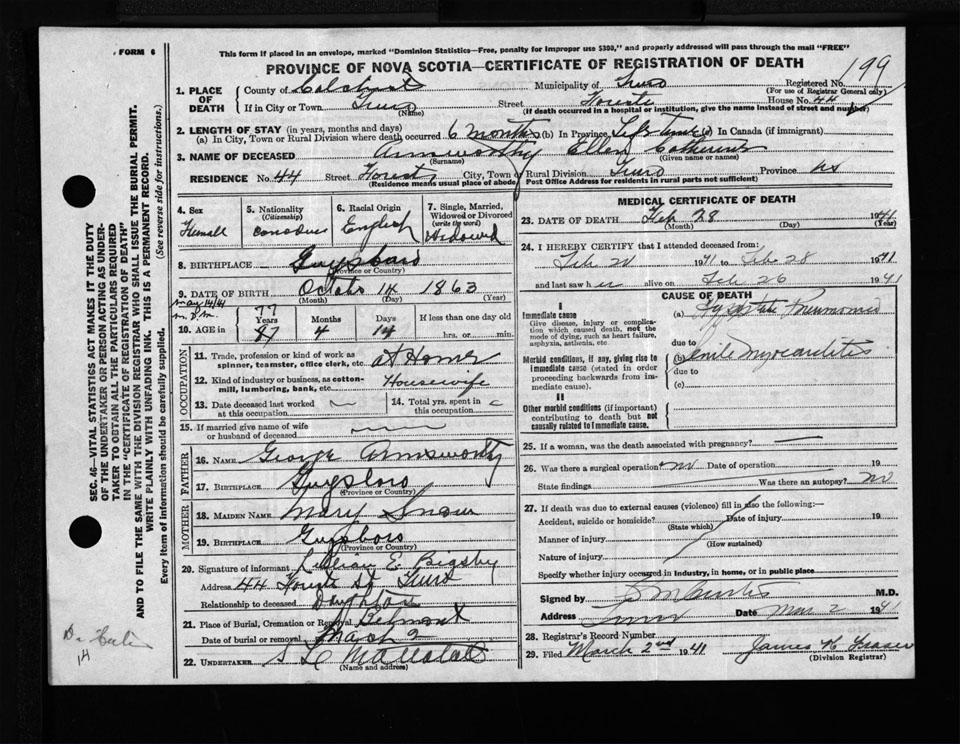 FORM 6
This form if placed in an envelope, marked "Dominion Statistics—Free, penalty for improper use $300," and properly addressed will pass through the mail "FREE"
PROVINCE OF NOVA SCOTIA—CERTIFICATE OF REGISTRATION OF DEATH
199
1. PLACE OF DEATH
County of Colchest Municipality of Truro Registered No.
(For use of Registrar General only)
If in City or Town Truro Street Foreste House No. 44
(Name) (If death occurred in a hospital or institution, give the name instead of street and number)
2. LENGTH OF STAY (in years, months and days)
(a) In City, Town or Rural Division where death occurred 6 months (b) In Province Life time (c) In Canada (if immigrant)
3. NAME OF DECEASED Armsworthy Ellen Catherine
(Surname) (Given name or names)
RESIDENCE No. 44 Street Forest City, Town or Rural Division Truro Province NS
(Residence means usual place of abode. Post Office Address for residents in rural parts not sufficient)
4. Sex Female
5. Nationality (Citizenship) Canadian
6. Racial Origin English
7. Single, Married, Widowed or Divorced (write the word) Widowed
8. BIRTHPLACE Guysboro
(Province or Country)
9. DATE OF BIRTH Octob 14 1863
(Month) (Day) (Year)
May 14/41
10. AGE in Years Months Days If less than one day old
77
87 4 14 hrs. or min.
OCCUPATION
11. Trade, profession or kind of work as spinner, teamster, office clerk, etc. at Home
12. Kind of industry or business, as cotton-mill, lumbering, bank, etc. Housewife
13. Date deceased last worked at this occupation
14. Total yrs. spent in this occupation
15. If married give name of wife or husband of deceased
FATHER
16. NAME George Armsworthy
17. BIRTHPLACE Guysboro
(Province or Country)
MOTHER
18. MAIDEN NAME Mary Snow
19. BIRTHPLACE Guysboro
(Province or Country)
20. Signature of informant Lillian E. Bigsby
Address 44 Foreste St Truro
Relationship to deceased Daughter
21. Place of Burial, Cremation or Removal Belmont
Date of burial or removal March 2
22. UNDERTAKER
(Name and address)
MEDICAL CERTIFICATE OF DEATH
23. DATE OF DEATH Feb 28 1941
(Month) (Day) (Year)
24. I HEREBY CERTIFY that I attended deceased from:
Feb 21 1941 to Feb 28 1941
and last saw her alive on Feb 26 1941
CAUSE OF DEATH
I
Immediate cause
Give disease, injury or complication which caused death, not the mode of dying, such as heart failure, asphyxia, asthenia, etc.
(a) Hypostatic Pneumonia
due to
Morbid conditions, if any, giving rise to immediate cause (stated in order proceeding backwards from immediate cause).
(b) Senile Myocarditis
due to
(c)
II
Other morbid conditions (if important) contributing to death but not causally related to immediate cause.
25. If a woman, was the death associated with pregnancy?
26. Was there a surgical operation? no Date of operation 19
State findings Was there an autopsy? no
27. If death was due to external causes (violence) fill in also the following:—
Accident, suicide or homicide? Date of injury 19
(State which)
Manner of injury
(How sustained)
Nature of injury
Specify whether injury occurred in industry, in home, or in public place
Signed by M.D.
Address Truro Date Mar 2 1941
28. Registrar's Record Number
29. Filed March 2nd 1941 James H Fraser
(Division Registrar)
SEC. 46—VITAL STATISTICS ACT MAKES IT THE DUTY
OF THE UNDERTAKER OR PERSON ACTING AS UNDER-
TAKER TO OBTAIN ALL THE PARTICULARS REQUIRED
IN THE "CERTIFICATE OF REGISTRATION OF DEATH"
AND TO FILE THE SAME WITH THE DIVISION REGISTRAR WHO SHALL ISSUE THE BURIAL PERMIT.
WRITE PLAINLY WITH UNFADING INK. THIS IS A PERMANENT RECORD.
Every item of information should be carefully supplied. (See reverse side for instructions.)
14